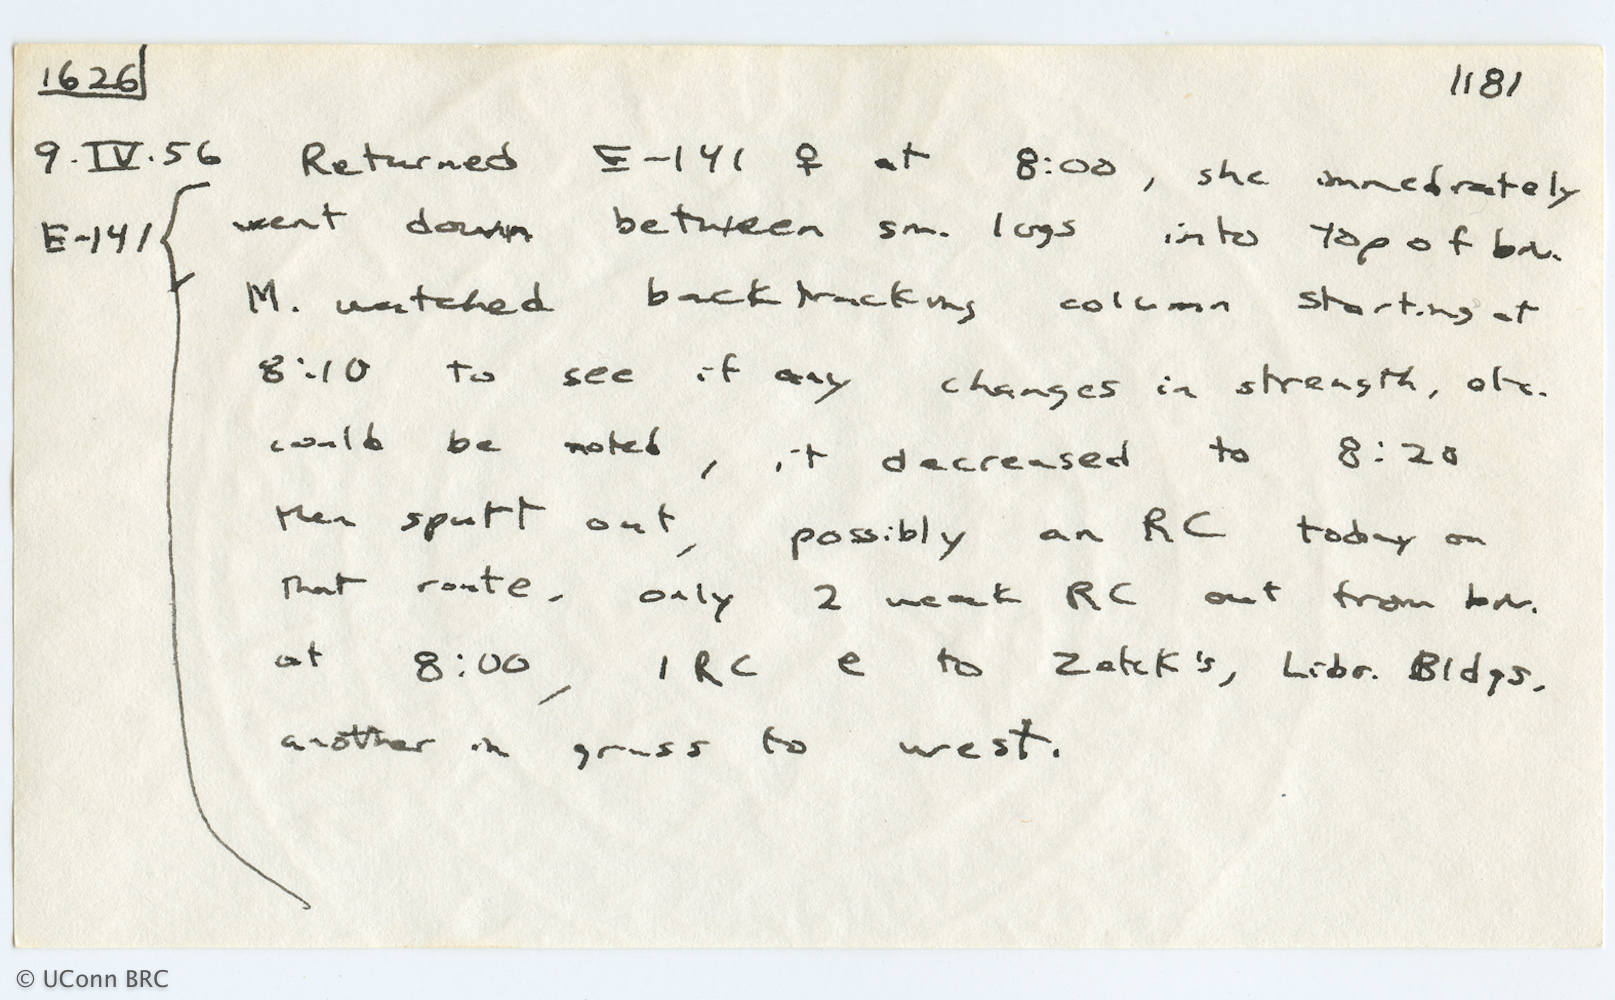 1626 1181
9.IV.56 Returned E-141 ♀ at 8:00, she immediately
E-141 went down between sm. logs into top of biv.
M. watched backtracking column starting at
8:10 to see if any changes in strength, etc.
could be noted, it decreased to 8:20
then sputt out, possibly an RC today on
that route. only 2 weak RC out from biv.
at 8:00, 1 RC e to Zetek's, Libr. Bldgs,
another in grass to west.
© UConn BRC